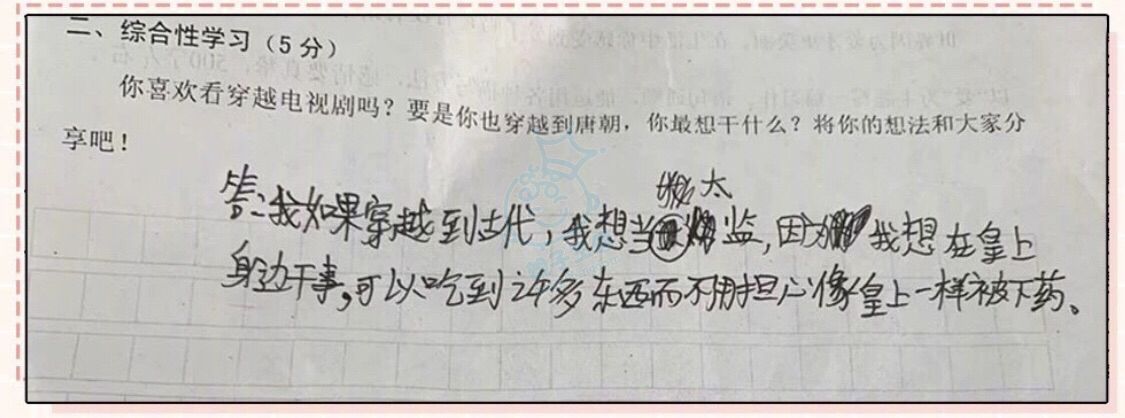 二、综合性学习（5 分）
你喜欢看穿越电视剧吗？要是你也穿越到唐朝，你最想干什么？将你的想法和大家分
享吧！
太
答：我如果穿越到古代，我想当监，因为我想在皇上
身边干事，可以吃到许多东西而不用担心像皇上一样被下药。